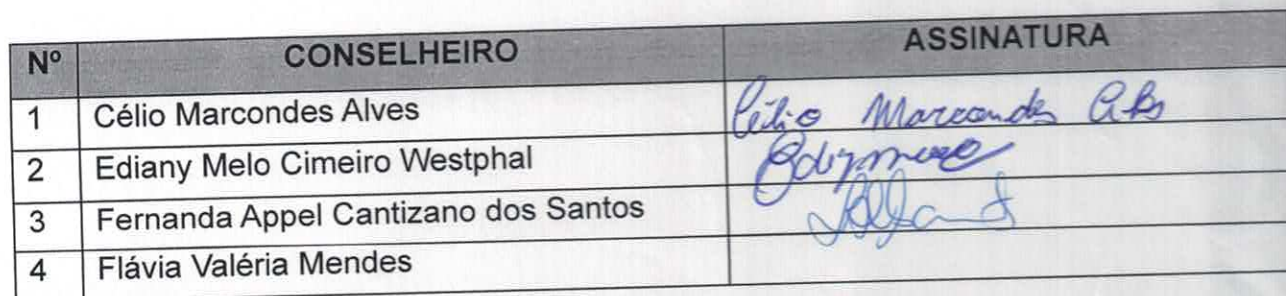 Nº CONSELHEIRO ASSINATURA
1 Célio Marcondes Alves Célio Marcondes Alves
2 Ediany Melo Cimeiro Westphal
3 Fernanda Appel Cantizano dos Santos
4 Flávia Valéria Mendes